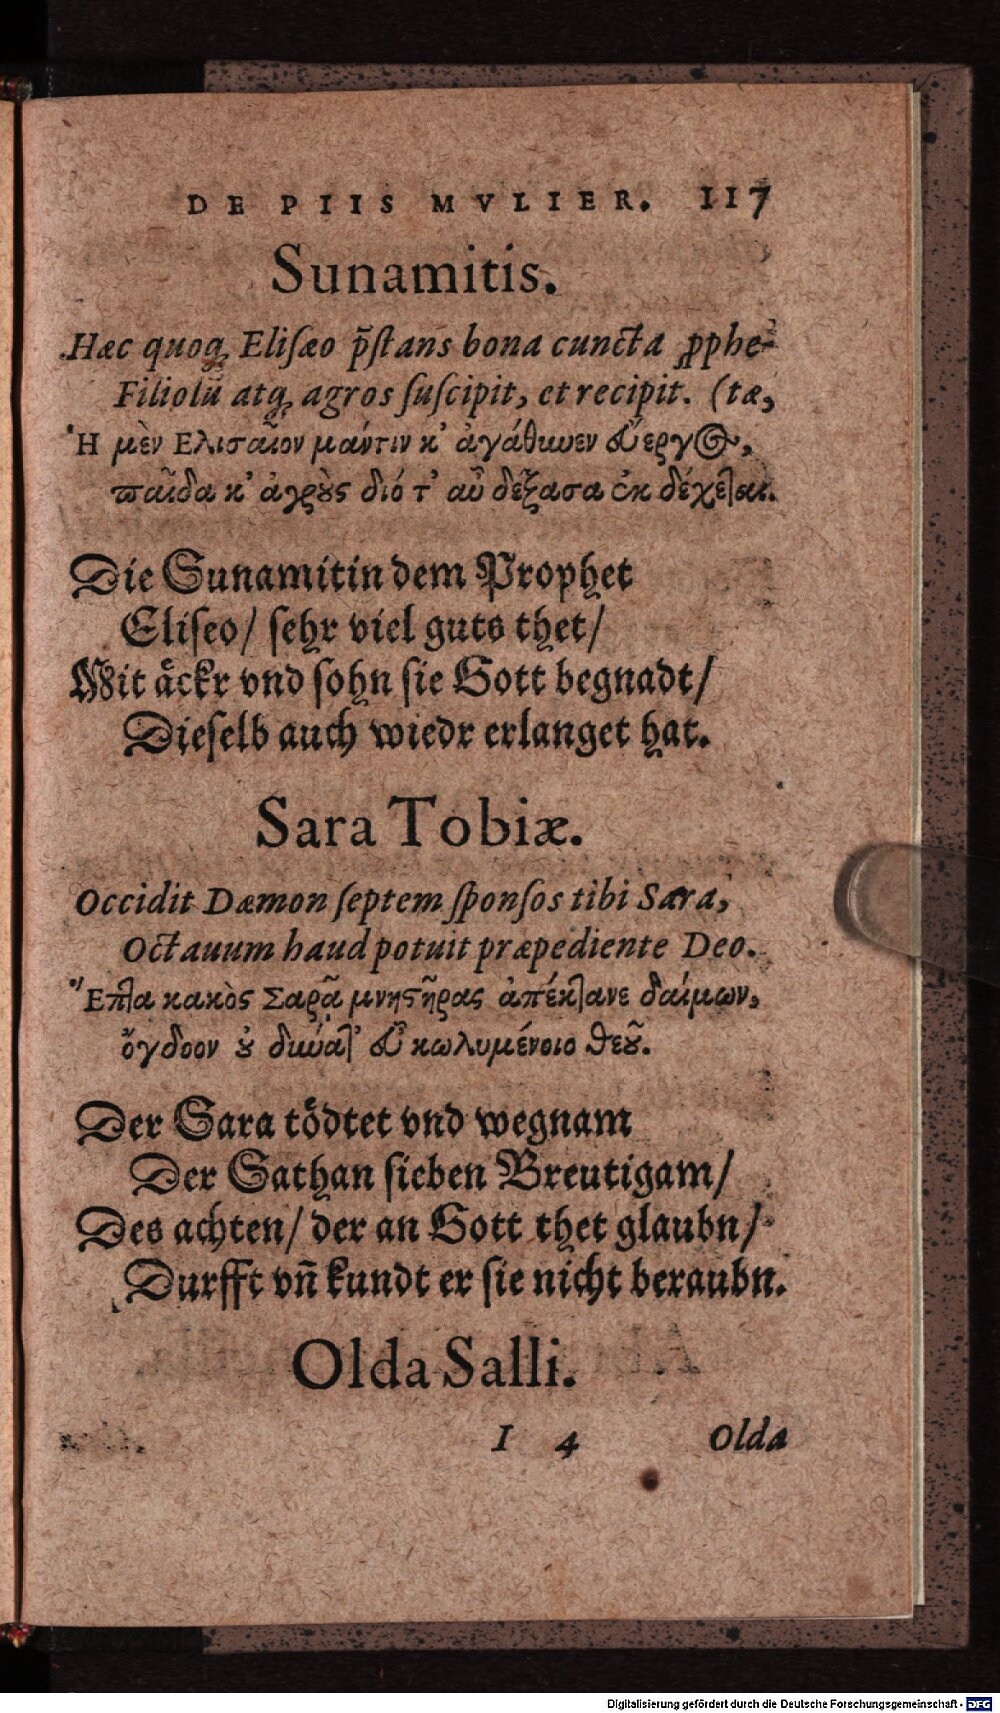 DE PIIS MVLIER. 117
Sunamitis.
Hæc quoq; Eliſæo p̄ſtans bona cuncta ꝓphe-
Filiolū atq; agros ſuſcipit, et recipit. (tæ,
Ἡ μὲν Ελισαῖον μάντιν κ' ἀγάθωσεν
παῖδα κ' ἀγροὺς διό τ' αὖ δέξασα ἐκ δέχεται.
Die Sunamitin dem Prophet
Eliſeo/ ſehr viel guts thet/
Mit åckr vnd ſohn ſie Gott begnadt/
Dieſelb auch wiedr erlanget hat.
Sara Tobiæ.
Occidit Dæmon ſeptem ſponſos tibi Sara,
Octauum haud potuit præpediente Deo.
Ἑπτα κακὸς Σαρᾶ μνηστῆρας ἀπέκτανε δαίμων,
ὄγδοον οὐ κωλυμένοιο θεοῦ.
Der Sara tödtet vnd wegnam
Der Sathan ſieben Breutigam/
Des achten/ der an Gott thet glaubn/
Durfft vñ kundt er ſie nicht beraubn.
Olda Salli.
I 4 Olda
Digitalisierung gefördert durch die Deutsche Forschungsgemeinschaft - DFG